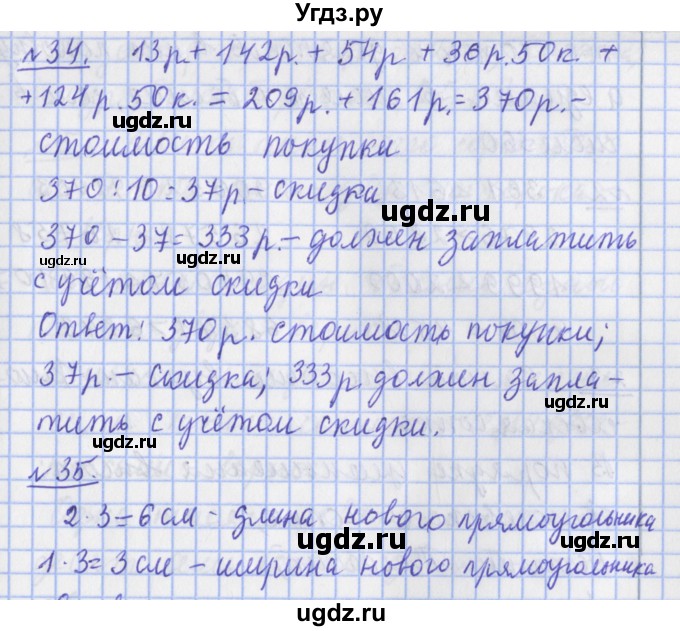 Угдз.ру
№34. 13р + 142р. + 54р + 36р.50к. +
+124р.50к. = 209р. + 161р. = 370р. –
стоимость покупки
370 : 10 = 37р – скидка
370 – 37 = 333р. – должен заплатить
с учётом скидки
Ответ: 370р. стоимость покупки;
37р. – скидка; 333р должен запла-
тить с учётом скидки.
№35.
2·3=6см – длина нового прямоугольника
1·3=3см – ширина нового прямоугольника
ugdz.ru
ugdz.ru
ugdz.ru
ugdz.ru
ugdz.ru
ugdz.ru
ugdz.ru
ugdz.ru
ugdz.ru
ugdz.ru